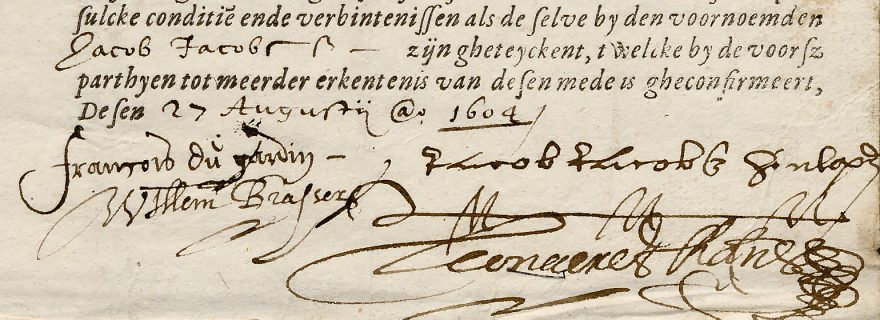 sulcke conditiē ende verbintenissen als de selve by den voornoemden
Jacob Jacobs — zijn gheteyckent, t welcke by de voorsz
parthyen tot meerder erkentenis van desen mede is gheconfirmeert,
Desen 27 Augustij @o 1604
françois du gardin — Jacob Jacobs
Willem Brasser